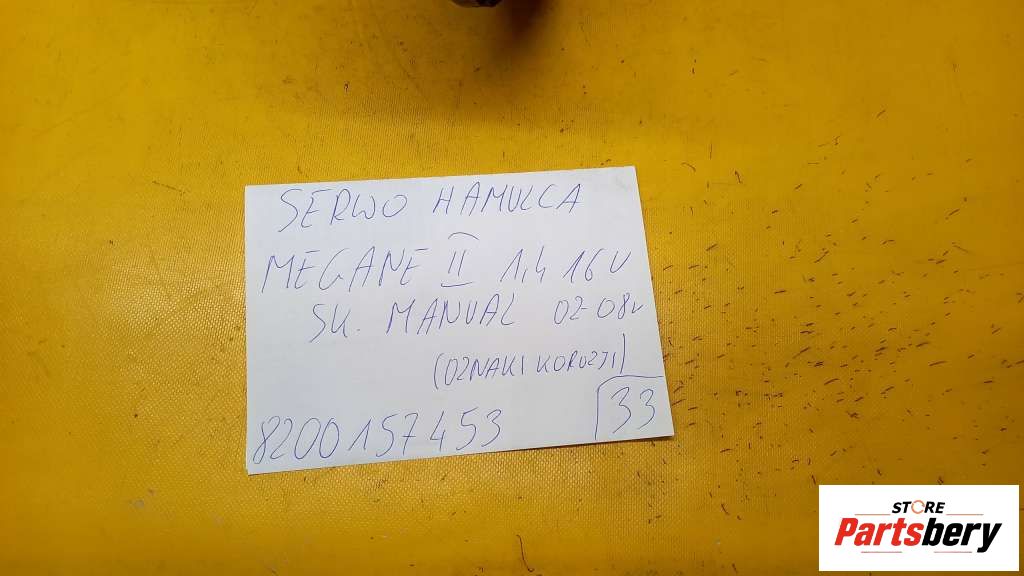 SERWO HAMULCA
MEGANE II 1,4 16V
SK. MANUAL 02-08r
(OZNAKI KOROZJI)
33
8200157453
STORE
Partsbery